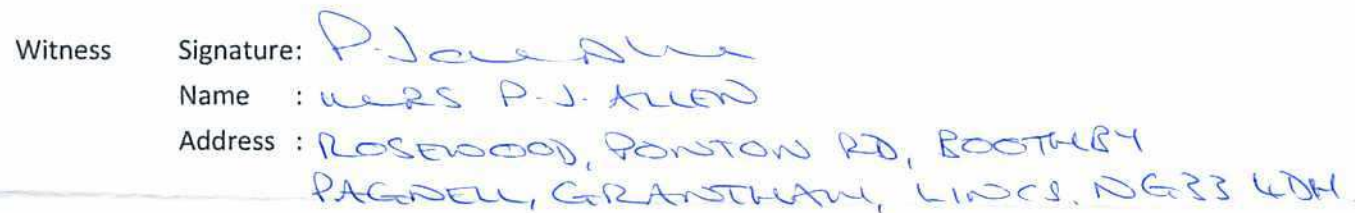 Witness Signature: P. Jane Allen
Name : MRS P. J. ALLEN
Address : ROSEWOOD, PONTON RD, BOOTHBY
PAGNELL, GRANTHAM, LINCS. NG33 4DH